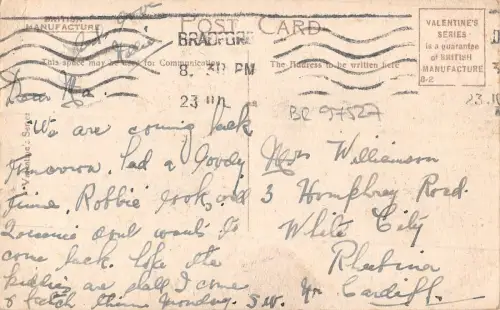 BRITISH
MANUFACTURE
POST CARD
BRADFORD
8.30 PM
23
This space may be used for Communication
The Address to be written here
VALENTINE'S
SERIES
is a guarantee
of BRITISH
MANUFACTURE
B-2
Valentine's Series
BC 97527
Dear Ma.
We are coming back
tomorrow. had a lovely
time. Robbie look, and
dont want to
come back. hope the
kiddies are all I come
& fetch them Monday.
Mrs Williamson
3 Homphrey Road.
White City
Rhubina
Nr Cardiff.
S.W.